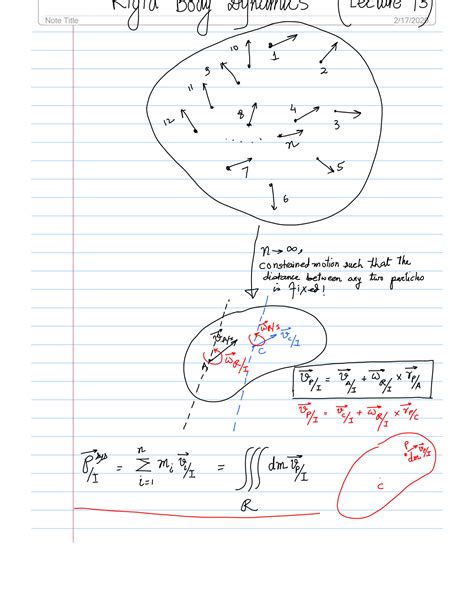 Rigid Body Dynamics (Lecture 13)
Note Title
2/17/2025
10
1
2
9
11
12
8
4
3
.....
n
7
5
6
n → ∞,
constrained motion such that the
distance between any two particles
is fixed!
v⃗_A/I
ω⃗_R/I
A
ω⃗_R/I
v⃗_C/I
C
v⃗_P/I = v⃗_A/I + ω⃗_R/I × r⃗_P/A
v⃗_P/I = v⃗_C/I + ω⃗_R/I × r⃗_P/C
p⃗^sys_/I = Σ_{i=1}^{n} m_i v⃗_i/I = ∭_R dm v⃗_P/I
P
dm
v⃗_P/I
C